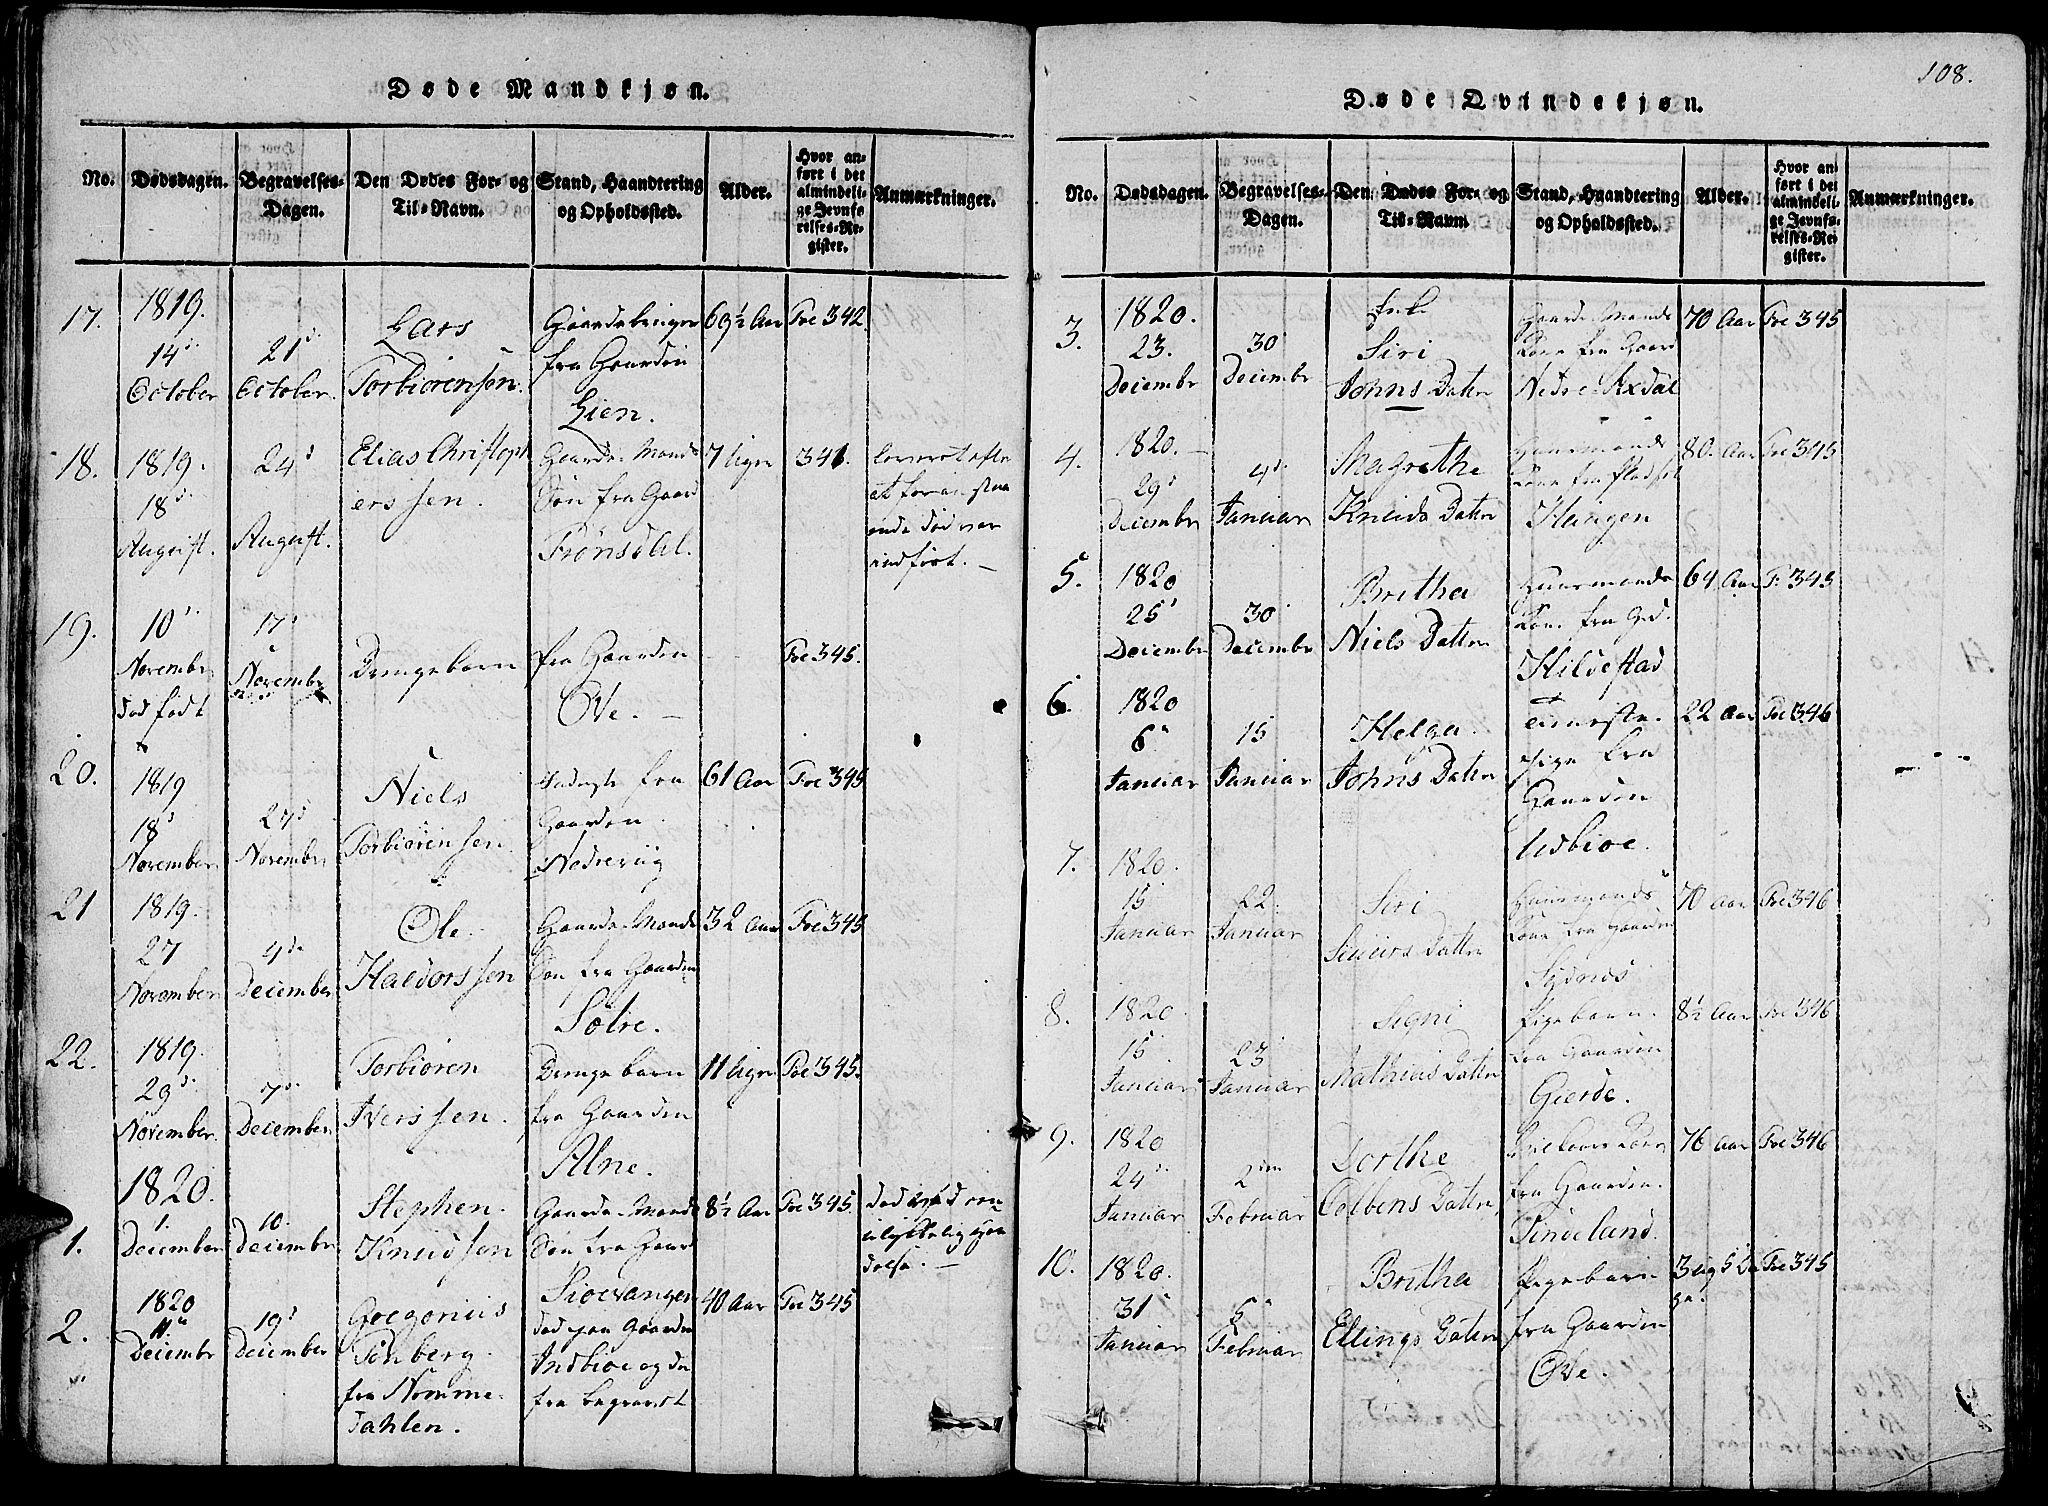 108.
Døde Mandkjøn.
No.
Dødsdagen.
Begravelses-
Dagen.
Den Dødes For- og
Til-Navn.
Stand, Haandtering
og Opholdssted.
Alder.
Hvor an-
ført i det
almindeli-
ge Jevnfø-
relses-Re-
gister.
Anmærkninger.
17.
1819.
14
October
21
October.
Lars
Torbiörensøn.
fra Gaarden
Lien.
69½ Aar
Foe 342.
18.
1819.
18
August.
24
August.
Elias Christoph
erssen.
Gaarde-Mands
Søn fra Gaard
Frønsdal.
7 Uger
341.
indført.
19.
10
November
død født
17
November
Drengebarn
fra Gaarden
Ove.
Foe 345.
20.
1819
18
November
27
November
Niels
Torbiörenssen.
fra
Gaarden
Nedreriig
61 Aar
Foe 345
21
1819.
27
November
4de
December
Ole
Haldorssen
Gaarde-Mands
Søn fra Gaarden
Sølve.
32 Aar
Foe 345
22.
1819.
29
November
7
December
Torbiören
Iverssen.
Drengebarn
fra Gaarden
Alne.
11 Uger
Foe 345.
1.
1820.
1.
December
10.
December
Stephen
Knudsøn
Gaarde-Mands
Søn fra Gaard
Siøevangen
8½ Aar
Foe 345
død ved en
ulykkelig Hæn
delse.
2.
1820
11
Decembr
19
December
Goegonius
Tønberg
fra Nomme-
dahlen.
død paa Gaarden
Indbioe og der
fra begravet
40 Aar
Foe 345
Døde Qvindekjøn.
No.
Dødsdagen.
Begravelses-
Dagen.
Den Dødes For- og
Til-Navn.
Stand, Haandtering
og Opholdssted.
Alder.
Hvor an
ført i det
almindeli-
ge Jevnfø-
relses-Re
gister.
Anmærkninger.
3.
1820.
23.
Decembr
30
Decembr
Siri
Johns Datter
Gaarde-Mands
Kone fra Gaard
Nedre-Axdal
70 Aar
Foe 345
4.
1820.
29
Decembr
4
Januar
Magrethe
Knuds Datter
Huusmands
Kone fra Pladset
Haugen
80. Aar
Foe 345
5.
1820
25
Decembr
30
Decembr
Britha
Niels Datter
Huusmands
Kone fra Grd.
Hildestad
64 Aar
F. 345
6.
1820
6
Januar
15
Januar
Helga
Johns Datter
Pige fra
Gaarden
Udbioe.
22 Aar
Foe 346
7.
1820.
15
Januar
22.
Januar
Siri
Siuurs Datter
Huusmands
Kone fra Gaarden
Sydnæs
70 Aar
Foe 346
8.
1820.
15
Januar
23
Januar
Signi
Mathias Datter
Pigebarn.
fra Gaarden
Gierde.
8½ Aar
Foe 346
9.
1820
24
Januar
2den
Februar
Dorthe
Colbens Datter
Kone
fra Gaarden.
Tindeland.
76 Aar
Foe 346
10.
1820.
31
Januar
6
Februar
Britha
Ellings Datter
Pigebarn
fra Gaarden
Ove.
3 Ug 5 Da
ge.
Foe 345